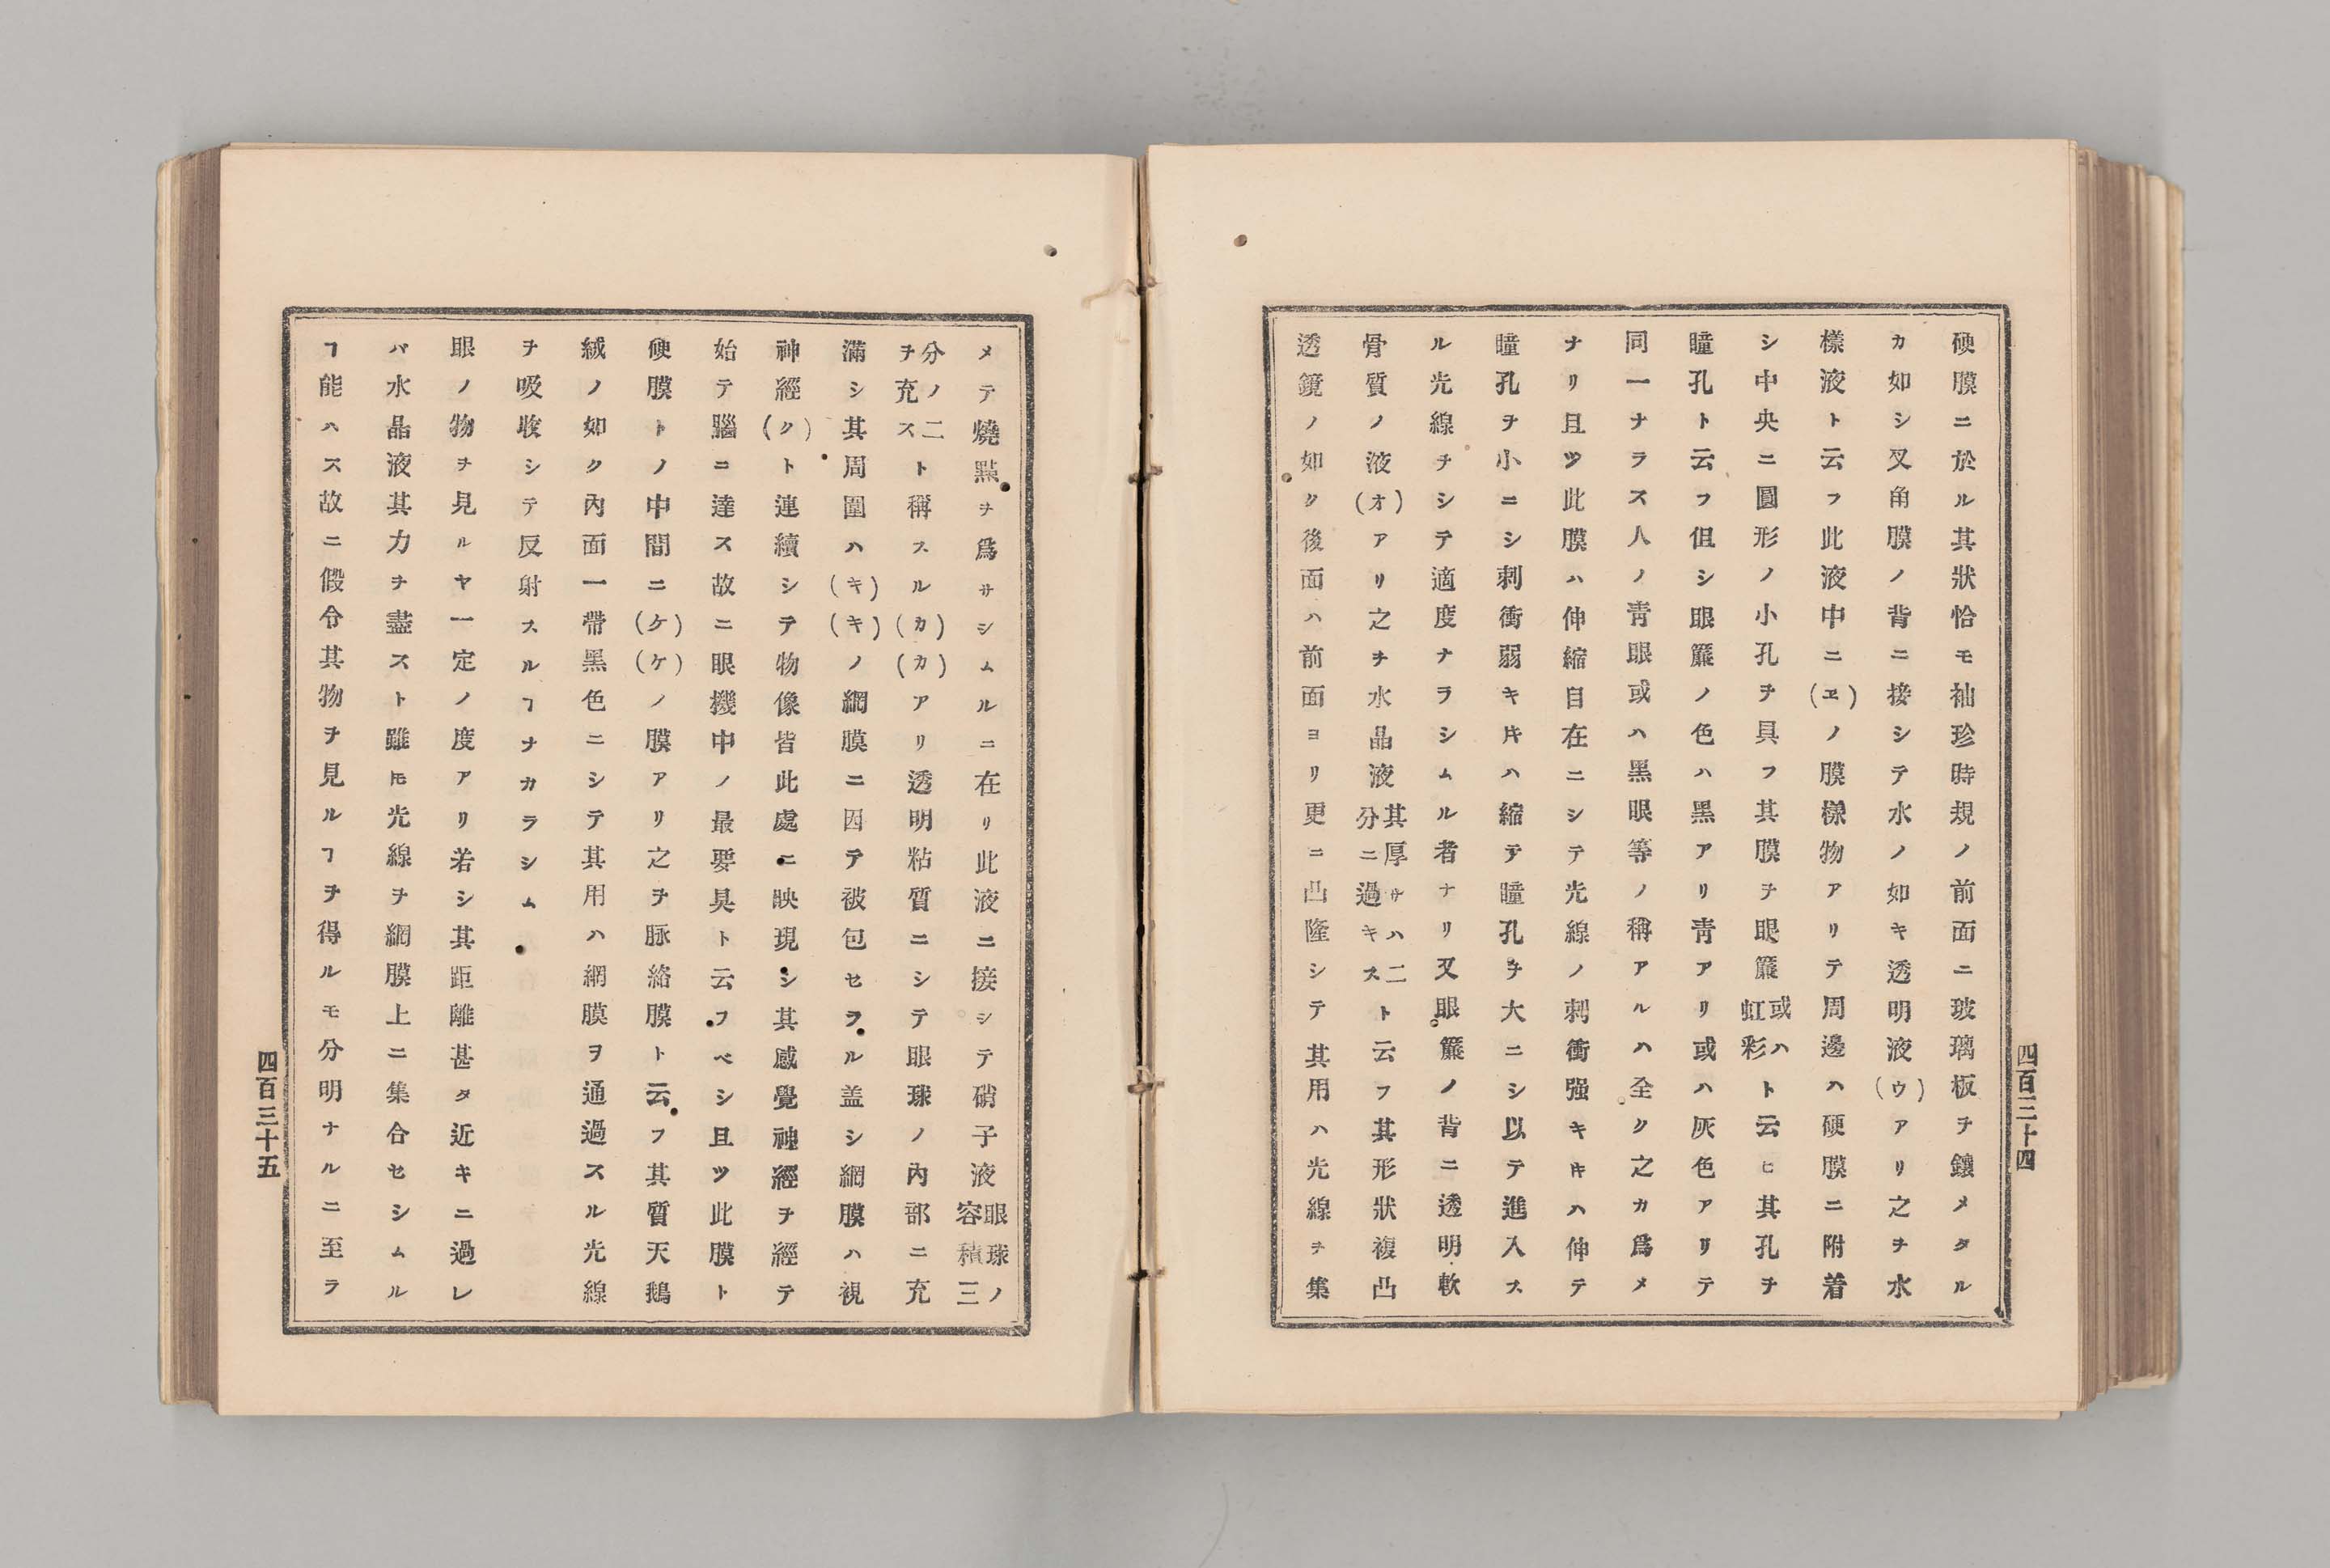 硬膜ニ於ル其狀恰モ袖珍時規ノ前面ニ玻璃板ヲ鑲メタル
カ如シ又角膜ノ背ニ接シテ水ノ如キ透明液(ウ)アリ之ヲ水
樣液ト云フ此液中ニ(ヱ)ノ膜樣物アリテ周邊ハ硬膜ニ附着
シ中央ニ圓形ノ小孔ヲ具フ其膜ヲ眼簾或ハ虹彩ト云ヒ其孔ヲ
瞳孔ト云フ但シ眼簾ノ色ハ黑アリ靑アリ或ハ灰色アリテ
同一ナラス人ノ靑眼或ハ黑眼等ノ稱アルハ全ク之カ爲メ
ナリ且ツ此膜ハ伸縮自在ニシテ光線ノ刺衝强キキハ伸テ
瞳孔ヲ小ニシ刺衝弱キキハ縮テ瞳孔ヲ大ニシ以テ進入ス
ル光線ヲシテ適度ナラシムル者ナリ又眼簾ノ背ニ透明軟
骨質ノ液(オ)アリ之ヲ水晶液其厚サハ二分ニ過キスト云フ其形狀複凸
透鏡ノ如ク後面ハ前面ヨリ更ニ凸隆シテ其用ハ光線ヲ集
四百三十四
メテ燒點ヲ爲サシムルニ在リ此液ニ接シテ硝子液眼球ノ容積三
分ノ二ヲ充スト稱スル(カ)(カ)アリ透明粘質ニシテ眼球ノ內部ニ充
滿シ其周圍ハ(キ)(キ)ノ網膜ニ因テ被包セラル盖シ網膜ハ視
神經(ク)ト連續シテ物像皆此處ニ映現シ其感覺神經ヲ經テ
始テ腦ニ達ス故ニ眼機中ノ最要具ト云フベシ且ツ此膜ト
硬膜トノ中間ニ(ケ)(ケ)ノ膜アリ之ヲ脈絡膜ト云フ其質天鵝
絨ノ如ク內面一帶黑色ニシテ其用ハ網膜ヲ通過スル光線
ヲ吸收シテ反射スルヿナカラシム
眼ノ物ヲ見ルヤ一定ノ度アリ若シ其距離甚タ近キニ過レ
バ水晶液其力ヲ盡スト雖𪜈光線ヲ網膜上ニ集合セシムル
ヿ能ハス故ニ假令其物ヲ見ルヿヲ得ルモ分明ナルニ至ラ
四百三十五